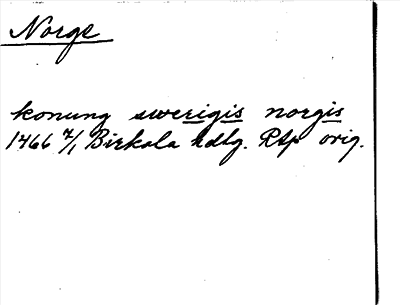 Norge
konung swerigis norgis
1466 7/1 Birkala hdlg. Rap orig.